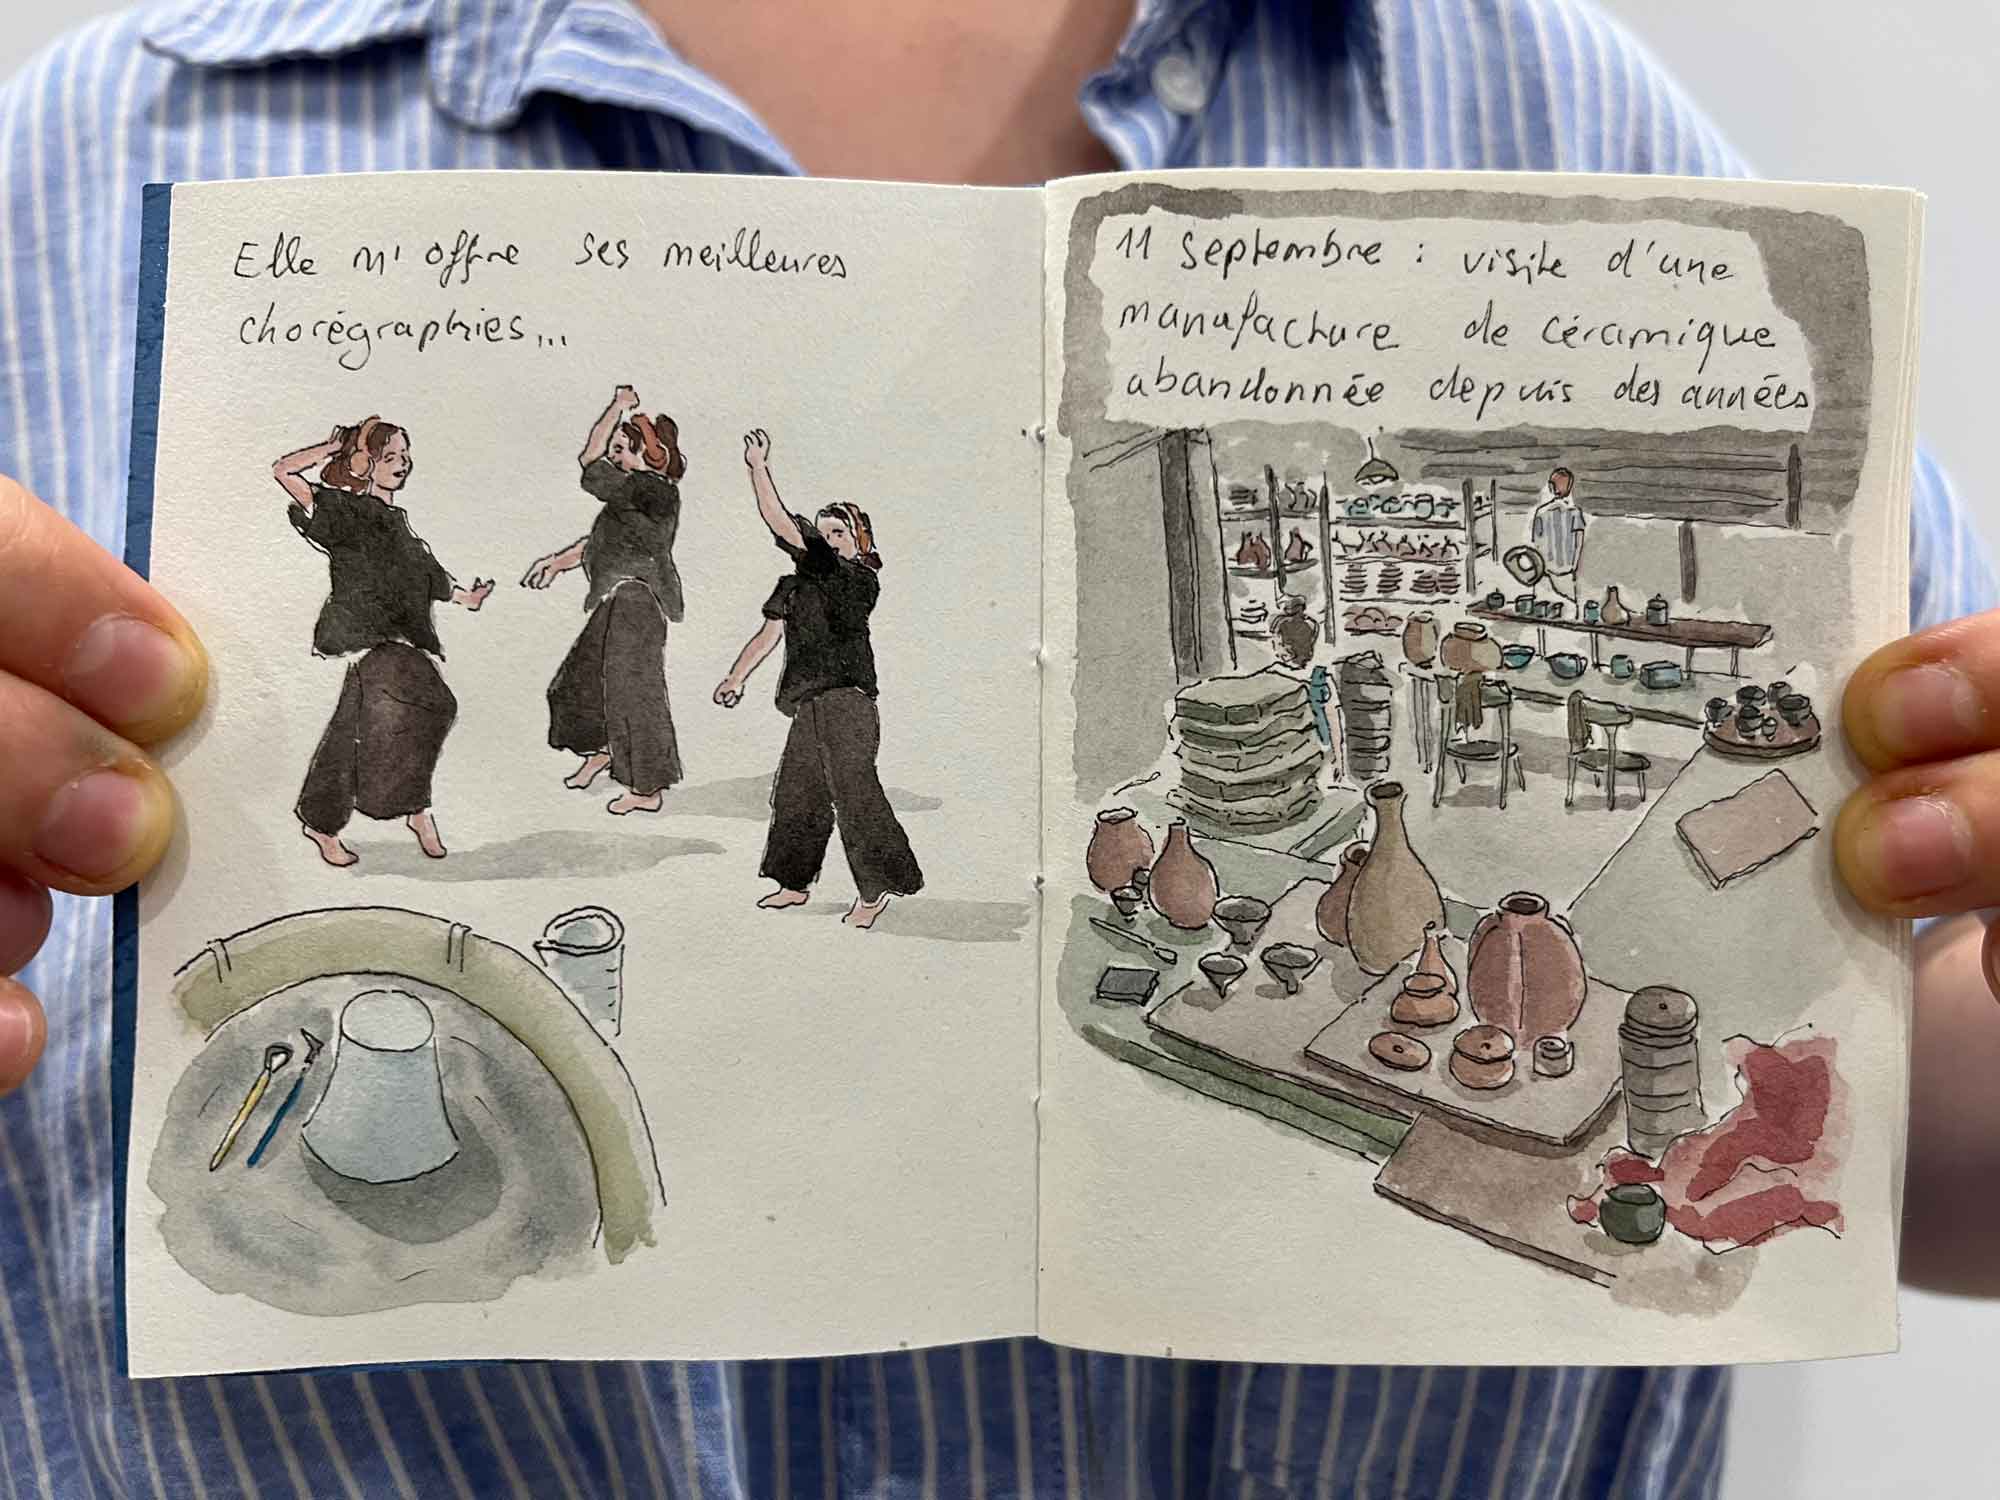 Elle m'offre ses meilleures
chorégraphies...
11 septembre : visite d'une
manufacture de céramique
abandonnée depuis des années